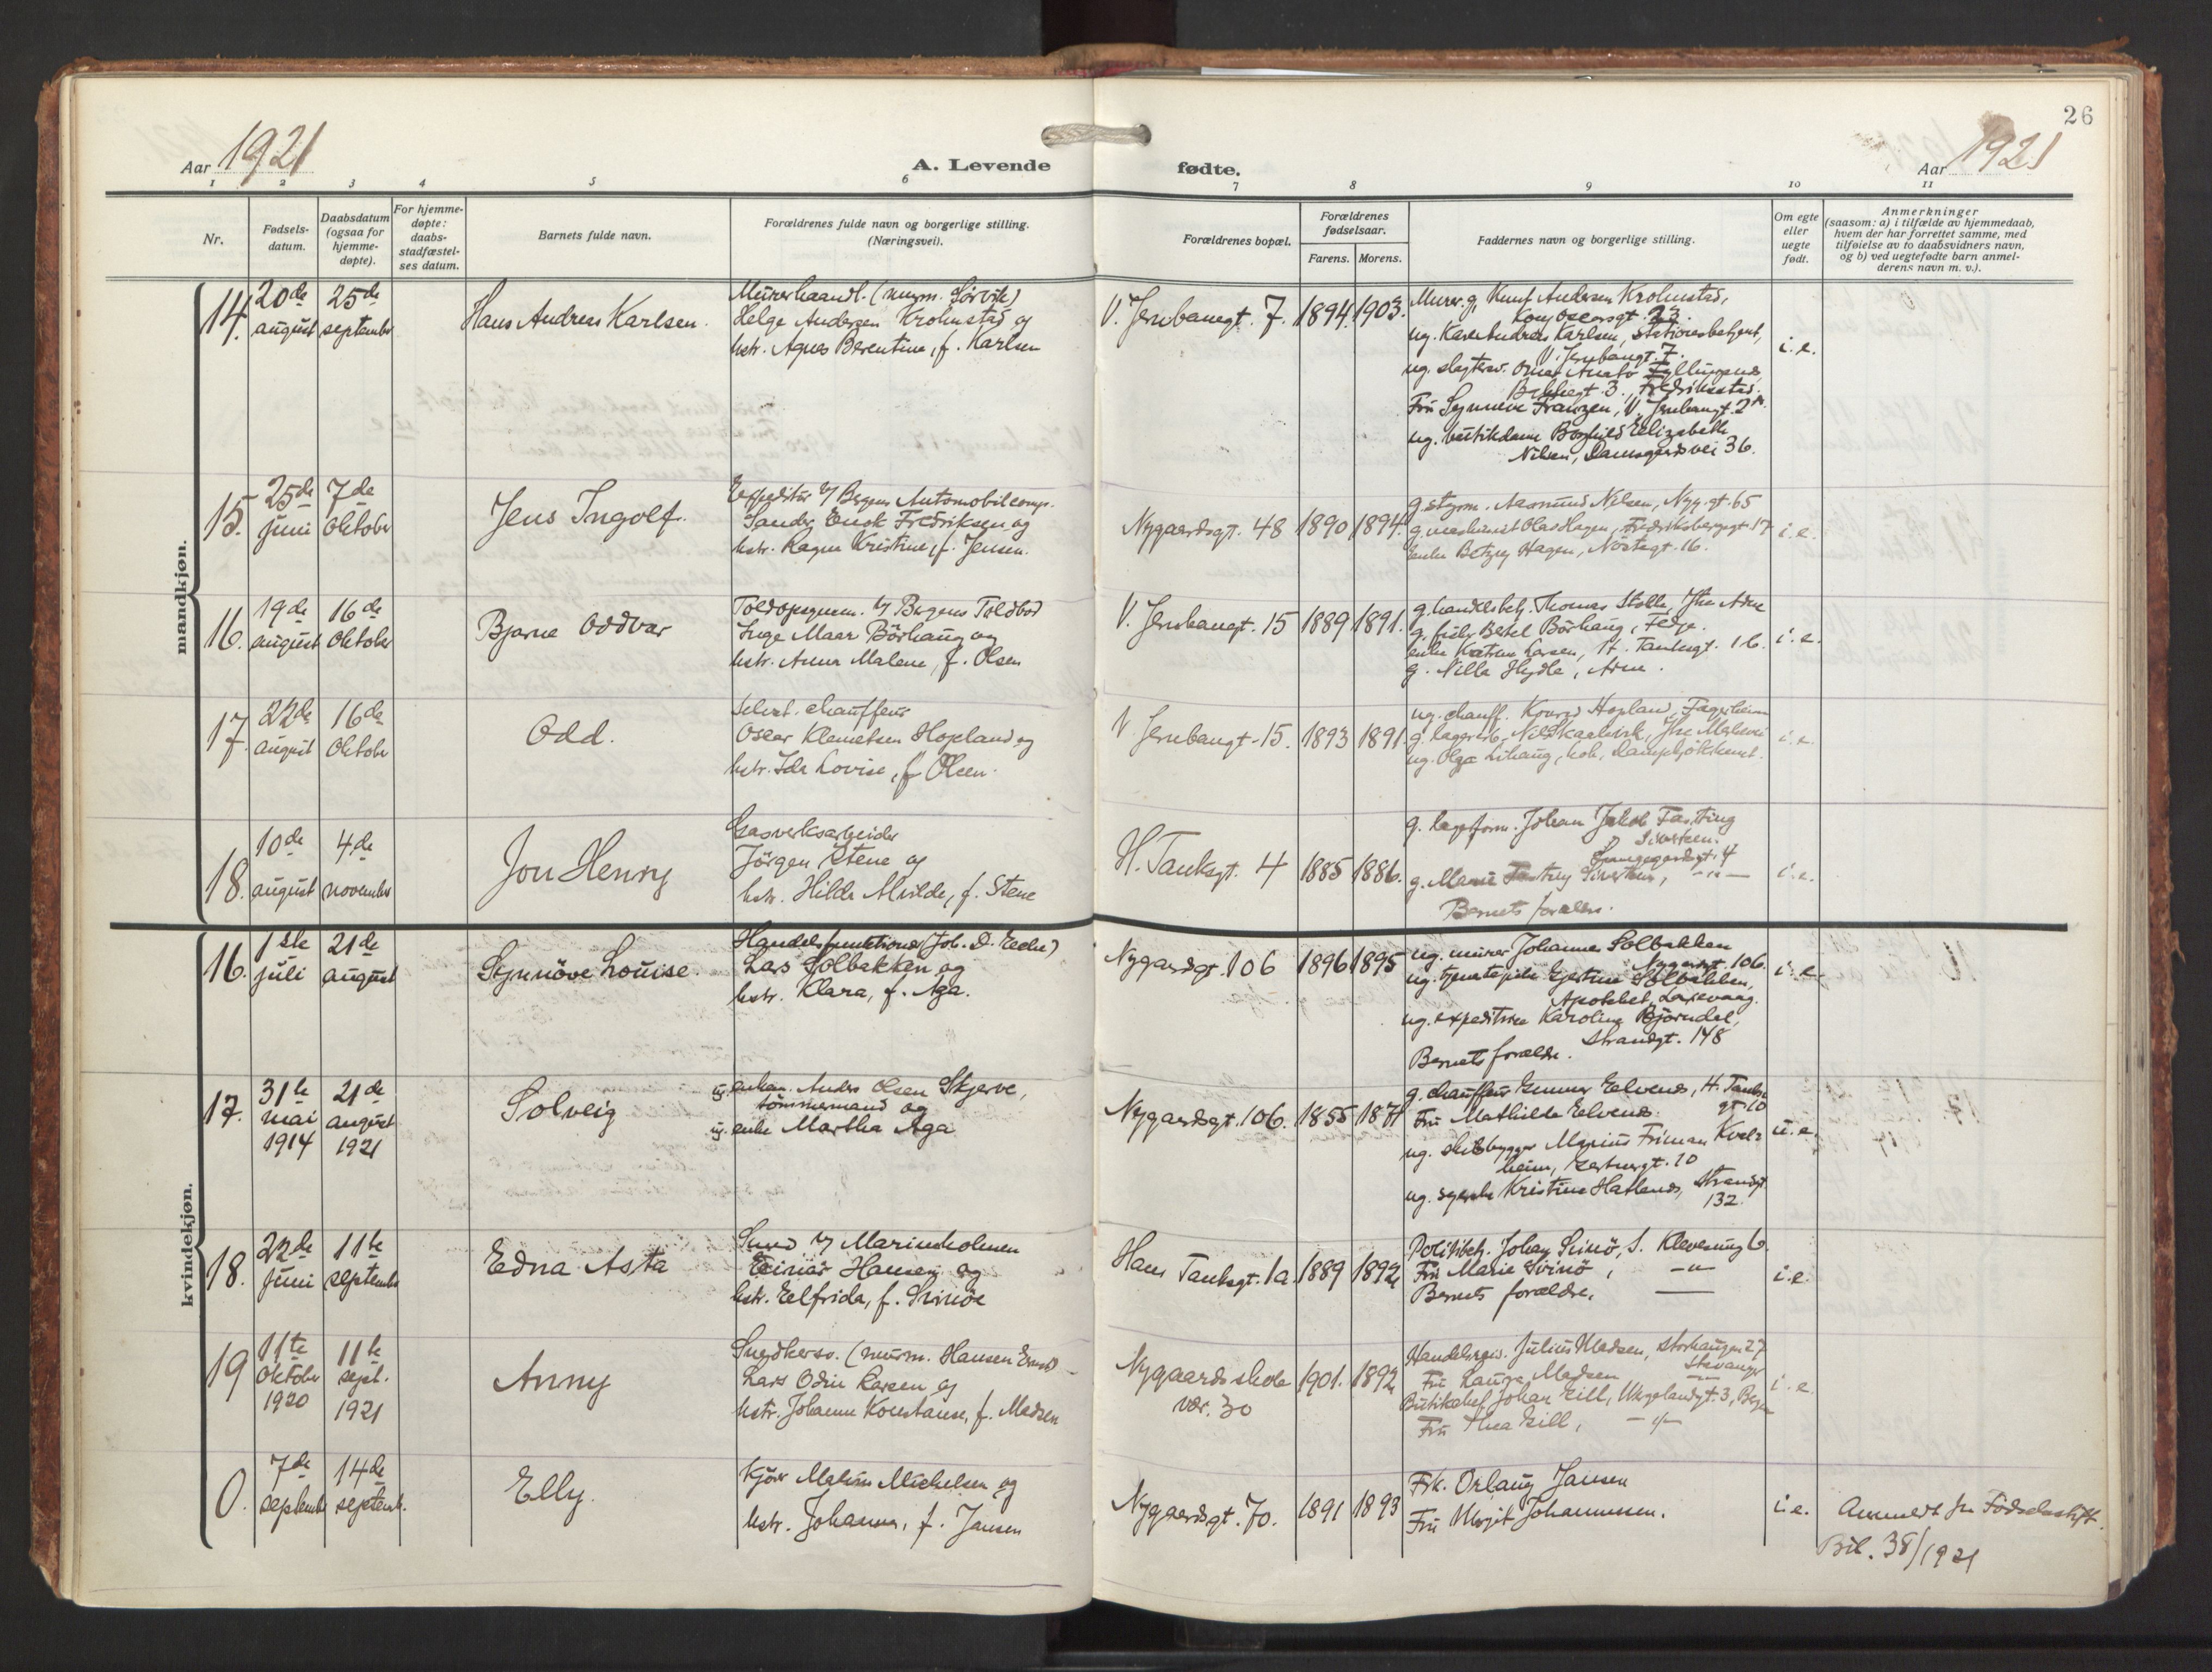 26
Aar 1921
A. Levende
fødte.
Aar 1921
1 2 3 4 5 6 7 8 9 10 11
Nr.
Fødsels-
datum.
Daabsdatum
(ogsaa for
hjemme-
døpte).
For hjemme-
døpte:
daabs-
stadfæstel-
ses datum.
Barnets fulde navn.
Forældrenes fulde navn og borgerlige stilling.
(Næringsvei).
Forældrenes bopæl.
Forældrenes
fødselsaar.
Farens. Morens.
Faddernes navn og borgerlige stilling.
Om egte
eller
uegte
født.
Anmerkninger
(saasom: a) i tilfælde av hjemmedaab,
hvem der har forrettet samme, med
tilføielse av to daabsvidners navn,
og b) ved uegtefødte barn anmel-
derens navn m. v.).
mandkjøn.
14. 20de august
25de september
Hans Andreas Karlsen.
Murerhaandl. (murm. Sörvik)
Helge Andersen Krohnstad og
hstr. Agnes Berentine, f. Karlsen
V. Jernbanegt. 7.
1894. 1903.
Murer g. Knut Andersen Krohnstad,
Kong Oscarsgt. 23.
ug. Karl Andreas Karlsen, stationsbetjent,
V. Jernbangt. 7.
3, Fredriksstad.
Fru Synneve Franzen, V. Jernbangt. 2
ug. butikdame Borghild Elizabeth
Nilsen, Damsgaardsvei 36.
i. e.
15. 25de juni
7de oktober
Jens Ingolf.
Expeditör v/ Bergens Automobilcomp.
Sander Enok Fredriksen og
hstr. Ragna Kristine, f. Jensen.
Nygaardsgt. 48
1890 1894.
g. styrm. Aasmund Nilsen, Nyg.gt. 65
g. maskinist Olas Hagen, Fredriksbergsgt. 17
enke Betzy Hagen, Nöstegt. 16.
i. e.
16. 19de august
16de oktober
Bjarne Oddvar
Toldopsynsm. v/ Bergens Toldbod
Inge Maar Börhaug og
hstr. Anna Malene, f. Olsen
V. Jernbanegt. 15
1889 1891.
g. handelsbetj. Thomas Stolle,
g. Bertel Börhaug, Fedje.
enke Katrine Larsen, H. Tanksgt. 16.
g. Nilla Hydle,
i. e.
17. 22de august
16de oktober
Odd.
Selvst. chauffeur
Oscar Klemetsen Hopland og
hstr. Ida Lovise, f. Olsen.
V. Jernbangt. 15.
1893 1891.
ug. chauff. Konrad Hopland, Fagerheim
g. Nils Skaalevik,
ug. Olga Lihaug,
i. e.
18. 10de august
4de november
Jon Henry
Gasverksarbeider
Jörgen Stene og
hstr. Hilda Alvilde, f. Stene
H. Tanksgt. 4
1885 1886.
g. Johan Jakob Fasting
Sivertsen.
4
g. Marie Fasting Sivertsen, —"—
Barnets forældre.
i. e.
kvindekjøn.
16. 1ste juli
21de august
Synnöve Louise.
Handelsfunktionær (Joh. D. )
Lars Solbakken og
hstr. Klara, f. Aga.
Nygardsgt. 106
1896 1895
ug. murer Johannes Solbakken
Nygardsgt. 106.
ug. Gjertine Solbakken,
Apoteket, Laxevaag.
ug. expeditrice Karoline Björndal,
Strandgt. 148
Barnets forældre.
i. e.
17. 31te mai 1914
21de august 1921
Solveig
ug. enkem. Anders Olsen Skjerve,
tömmermand og
ug. enke Martha Aga
Nygaardsgt. 106.
1855 1871
g. chauffeur Gunnar Eelvend, H. Tanks
gt. 10
Fru Mathilde Eelvend.
ug. skibsbygger Marius Friman Kval-
heim, 10
ug. Kristine Hatland, Strandgt
132.
u. e.
18. 22de juni
11te september
Edna Asta
Smed v/ Marineholmen
Einar Hansen og
hstr. Elfrida, f. Svinöe
Hans Tanksgt. 1a.
1889 1892
Politibetj. Johan Svinö, S. Klevesmug 6.
Fru Marie Svinö, —"—
Barnets forældre.
i. e.
19 11te oktober 1920
11te sept. 1921
Anny
Snedkersv. (murm. Hansen )
Lars Odin Larsen og
hstr. Johanne Konstanse, f. Madsen
Nygaards skole
vær. 30
1901. 1892
Julius Madsen, Storhaugen 27
Stavanger
Fru Laura Madsen —"—
Butikchef Johan Gill, Wergelandsgt. 3, Bergen
Fru Thea Gill, —"—
i. e.
0. 7de september
14de septemb.
Elly.
Kjörer Mathias Michelsen og
hstr. Johanna, f. Jansen
Nygaardsgt. 70.
1891 1893
Frk. Orlaug Jansen
Fru Margit Johannessen.
i. e.
Anmeldt fra Födselsstift.
Bil. 38/1921